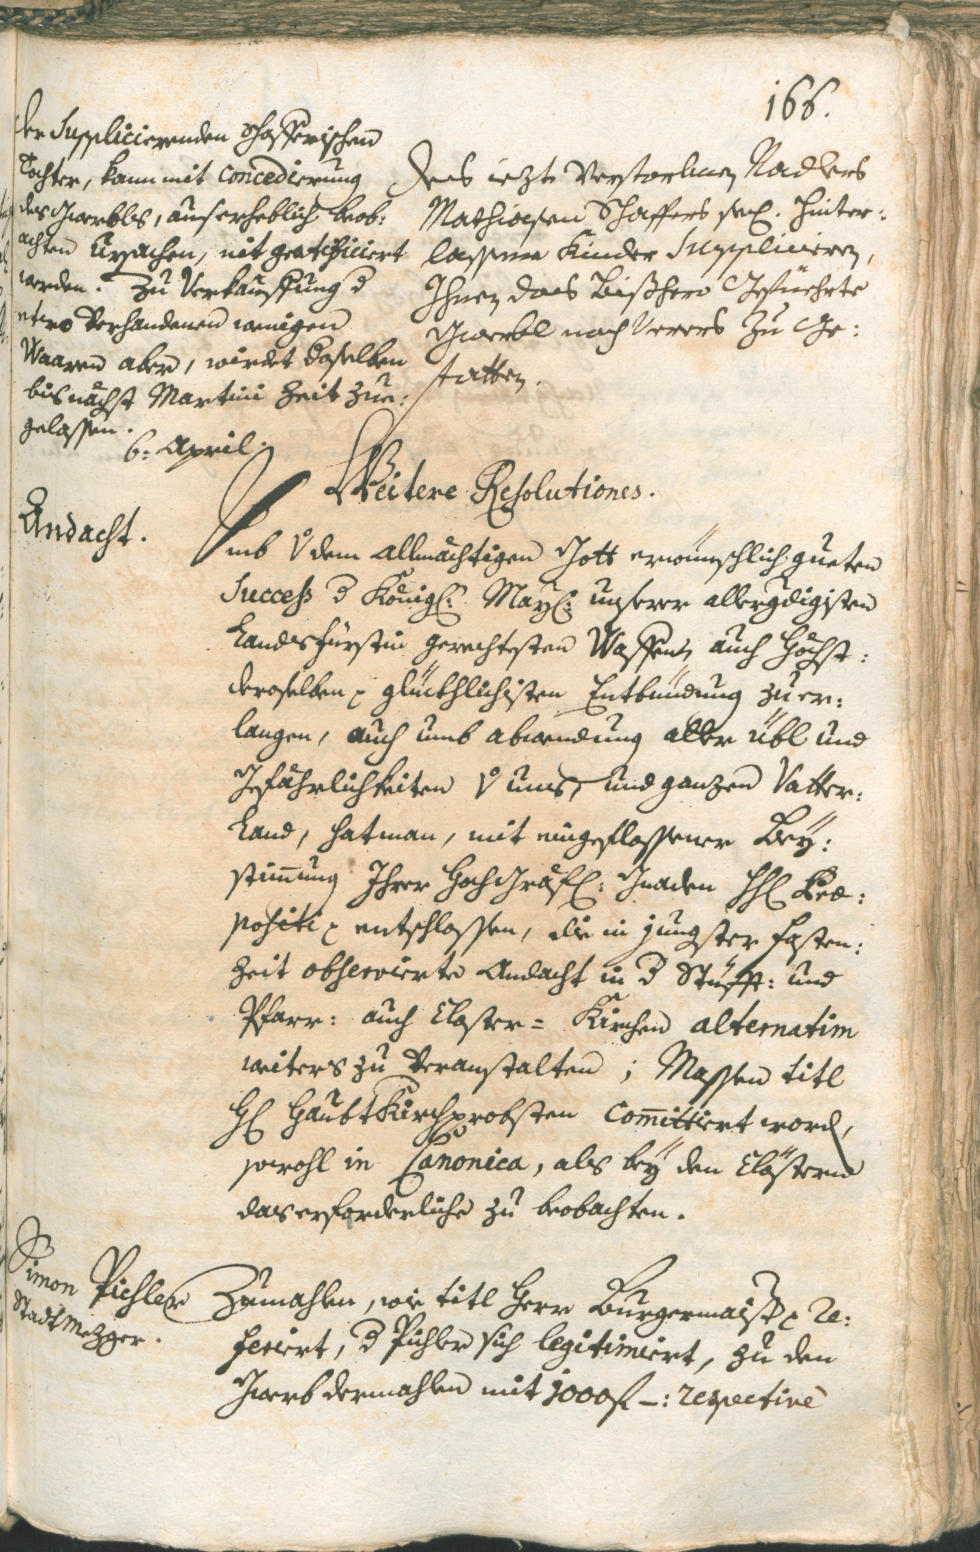 166.
der Supplicierenden Schafferischen
Tochter, kann mit concedierung
des Gwerbls, aus erheblich beob:
achten Ursachen, nit gratificiert
werden: Zu Verkauffung d
etwo verhandenen wenigen
Waaren aber, wirdet derselben
bis nächst Martini Zeit zue:
gelassen.
6: April:
Des iezt Verstorbnen Nadlers
Mathiasen Schaffers seel. hinter:
lassene Kinder Supplicieren,
Ihnen das Bißhero Gefüehrte
Gwerbl noch Verers zu Ge:
statten.
Weitere Resolutiones.
Andacht.
Umb v dem Allmächtigen Gott erwünschlich: gueten
Success d Königl: Mayl: unserer allergdigisten
Landsfürstin gerechtesten Waffen, auch Höchst:
deroselben glückhlichisten Entbündung zu er:
langen, auch umb abwendung aller übl und
Gefährlichkeiten v uns, und ganzen Vatter:
Land, hat man, mit eingeflossener Bey:
stimmung Ihrer HochGräfl: Gnaden HH Præ:
positi entschlossen, die in jungster Fasten:
Zeit observierte Andacht in d Stüfft: und
Pfarr: auch Closter= Kirchen alternatim
weiters zu Veranstalten; Massen titl
HH HaubtKirchprobsten Committiert word,
sowohl in Canonica, als bey den Clöstern
das erforderliche zu beobachten.
Simon Pichler
StadtMezger.
Zumahlen, wie titl Herr Burgermaist Re:
feriert, d Pichler sich legitimiert, zu den
Gwerb dermahlen mit 1000 f –: respective